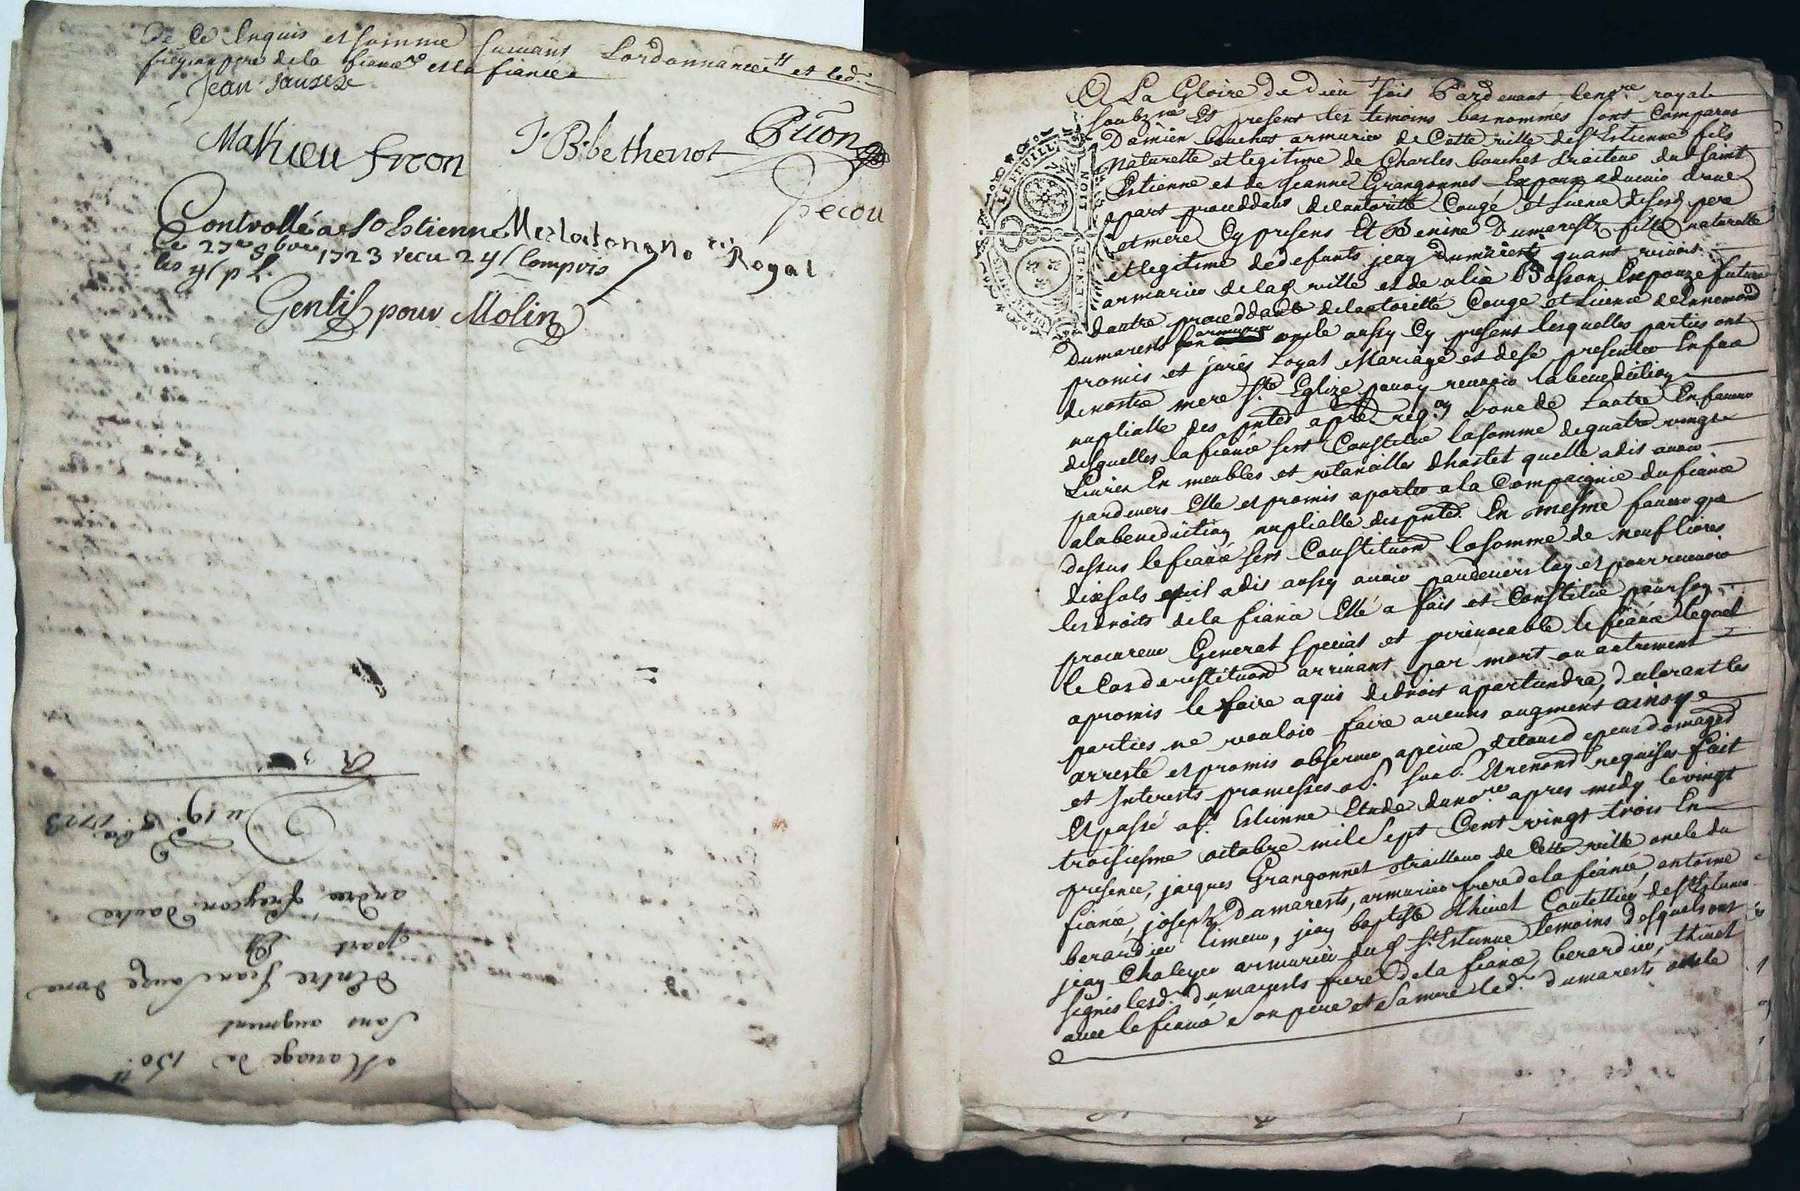 De Ce Enquis et somme suivant Lordonnance et led.
freycon pere de la fiancé et la fiancée
Jean Sauzée
Mathieu frecon
J. B. bethenot
Guon
frecon
Controllé a St Estienne
Ce 27e 8bre 1723 recu 24 s Compris
les 4 s p l.
Royal
Gentil pour Molin
Mariage de 150 tt
Sans augment
Entre Jean Sauze dune
part Et
andré freycon dautre
Du 19. 8bre 1723
LION
A La Gloire de dieu soit Pardevant le nore royal
soubzne Et present les temoins bas nommés sont Comparus
Damien bouchet armurier de Cette ville de St Estienne fils
Naturelle et legitime de Charles bouchet traiteur dud saint
Estienne et de Jeanne Grangonnet Expoux advenir dune
part proceddant de lautorité Conge et licence desesd pere
et mere Cy presens Et Benine Dumarest fille naturelle
et legitime de defunts jean dumarest quant vivoit
armurier de lad ville et de alix Basson Expouze future
dautre proceddante de lautorité Conge et licence de Ennemond
Dumarests son armurier oncle aussy Cy present lesquelles parties ont
promis et jurés Loyal Mariage et de se presenter En face
de nostre mere Ste Eglize pour y recevoir la benediction
nuptialle des pntes apres reqon Lune de Lautre En faveur
desquelles la fiancé sest Constitué la somme de quatre vingt
Livres En meubles et ustancilles dhostel quelle a dit avoir
pardevers Elle et promis aporter a la Compagnie du fiancé
a la benediction nuptialle des pntes. En mesme faveur que
dessus le fiancé sest Constitué la somme de neuf livres
dix sols quil a dit aussy avoir pardevers luy et pour recevoir
les droits de la fiancé Elle a fait et Constitué pour son
procureur General special et irrevocable le fiancé lequel
le Cas de restitution arrivant par mort ou autrement
a promis le faire a qui de droit apartiendra, declarant les
parties ne vouloir faire aucuns augment ainsy
arresté et promis observer a peine de tous depens domages
et Interests promesses ob. soub. Et renond requises fait
Et passé a St Estienne Etude du nore apres midy le vingt
troisiesme octobre mil sept Cent vingt trois En
presence, jacques Grangonnet trailleur de Cette ville oncle du
fiancé, joseph Dumarests, armurier frere de la fiancé, antoine
berardier limeur, jean baptiste thivet Coutellier de St Estienne
jean Chaleyer armurier dud St Estienne temoins desquels ont
signés lesd. dumarests frere de la fiancé, berardier, thivet
avec le fiancé son pere et sa mere led. dumarests oncle